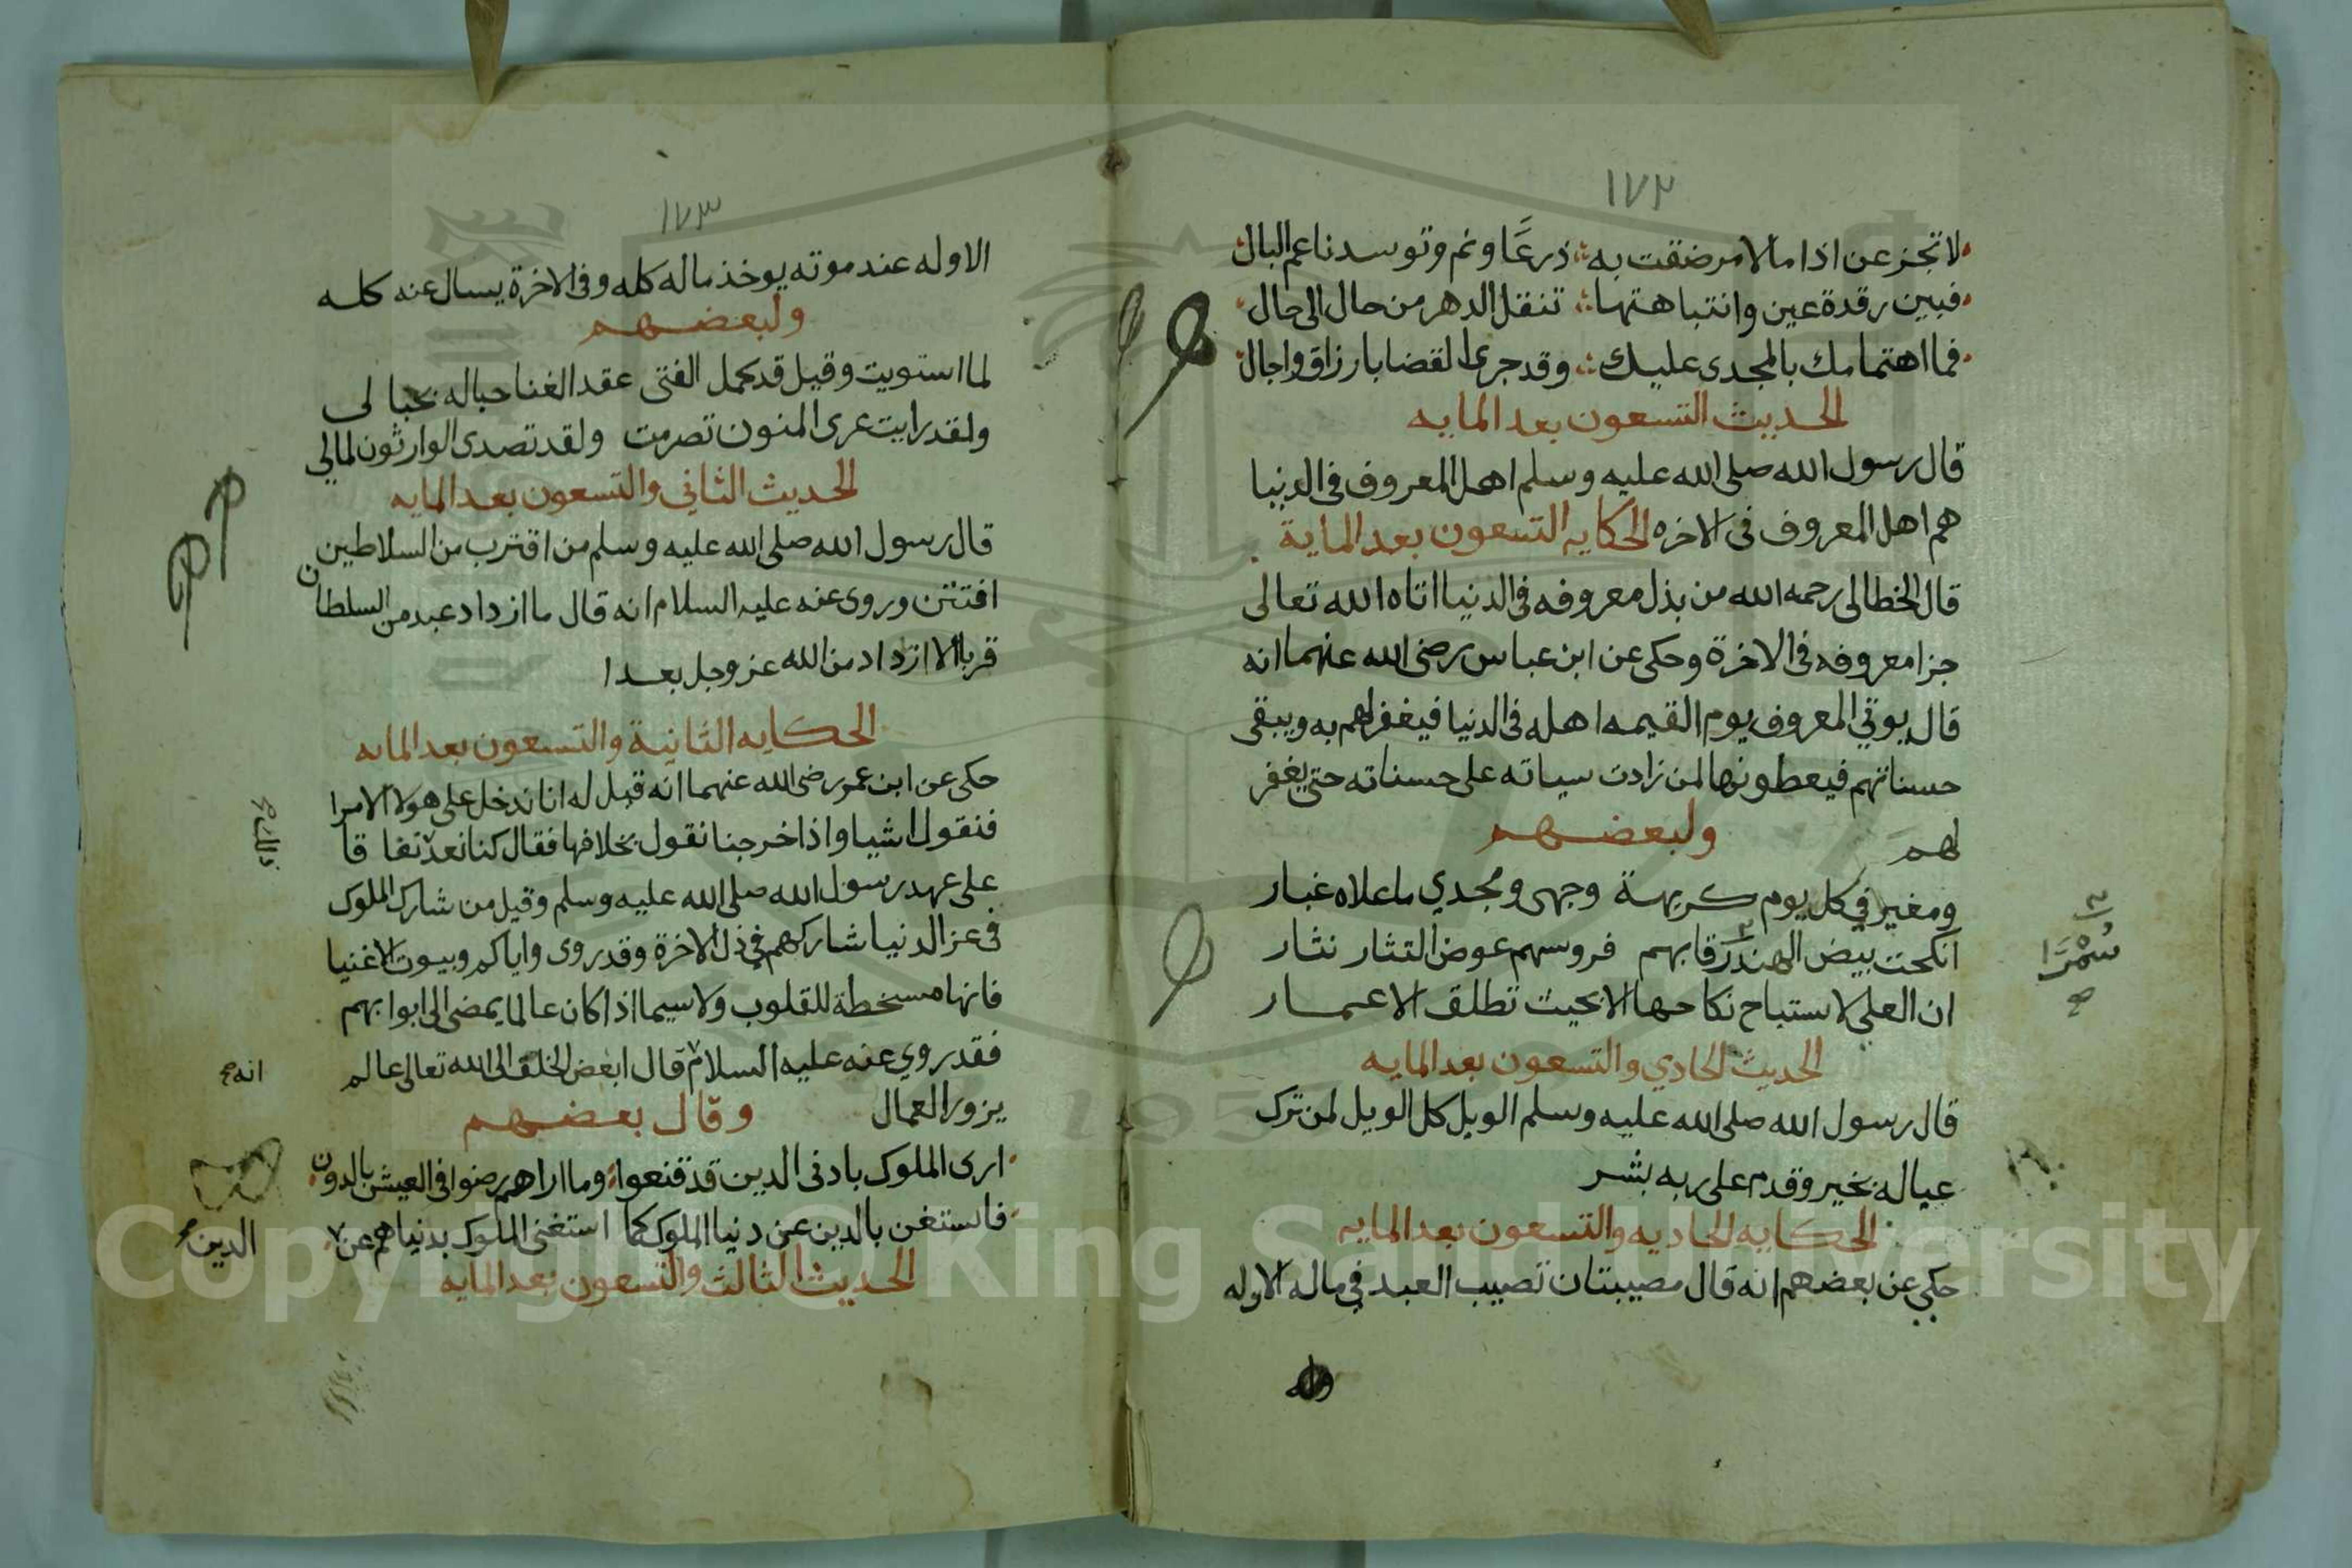 ١٧٢
لا تجزعن اذا ما الامر ضقت به ذرعًا ونم وتوسد ناعم البال
فبين رقدة عين وانتباهتها تنقل الدهر من حال الى حال
فما اهتمامك بالمجدى عليك وقد جرى القضا بارزاق واجال
الحديث التسعون بعد المايه
قال رسول الله صلى الله عليه وسلم اهل المعروف فى الدنيا
هم اهل المعروف فى الاخره الحكايه التسعون بعد الماية
قال الخطالى رحمه الله من بذل معروفه فى الدنيا اتاه الله تعالى
جزا معروفه فى الاخرة وحكى عن ابن عباس رضى الله عنهما انه
قال يوتي المعروف يوم القيمه اهله فى الدنيا فيغفر لهم به ويبقى
حسناتهم فيعطونها لمن زادت سياته على حسناته حتى يغفر
لهم ولبعضهم
ومغير في كل يوم كريهة وجهى ومجدي ما علاه غبار
انكحت بيض الهند رقابهم فروسهم عوض النثار نثار
سُمْرَا
ان العلى لا ستباح نكاحها الا بحيث تطلق الاعمار
الحديث الحادي والتسعون بعد المايه
قال رسول الله صلى الله عليه وسلم الويل كل الويل لمن ترك
عياله بخير وقدم على ربه بشر
الحكايه الحاديه والتسعون بعد المايه
حكي عن بعضهم انه قال مصيبتان تصيب العبد في ماله الاوله
١٧٣
الاوله عند موته يوخذ ماله كله وفى الاخرة يسال عنه كله
ولبعضهم
لما استويت وقيل قد كمل الفتى عقد الغنا حباله بحبالى
ولقد رايت عرى المنون تصرمت ولقد تصدى الوارثون لمالي
الحديث الثاني والتسعون بعد المايه
قال رسول الله صلى الله عليه وسلم من اقترب من السلاطين
افتتن وروى عنه عليه السلام انه قال ما ازداد عبد من السلطان
قربا الا ازداد من الله عز وجل بعدا
الحكايه الثانية والتسعون بعد المايه
حكى عن ابن عمر رضى الله عنهما انه قيل له انا ندخل على هولا الامرا
فنقول اشيا واذا خرجنا نقول بخلافها فقال كنا نعد نفاقا
ذلك
على عهد رسول الله صلى الله عليه وسلم وقيل من شارك الملوك
فى عز الدنيا شاركهم في ذل الاخرة وقد روى واياكم وبيوت الاغنيا
فانها مسخطة للقلوب ولا سيما اذا كان عالما يمضى الى ابوابهم
فقد روي عنه عليه السلام قال ابغض الخلق الى الله تعالى عالم
انه
يزور العمال وقال بعضهم
ارى الملوك بادنى الدين قد قنعوا وما اراهم رضوا فى العيش بالدون
فاستغن بالدين عن دنيا الملوك كما استغنى الملوك بدنياهم عن
الدين
الحديث الثالث والتسعون بعد المايه
Copyright © King Saud University